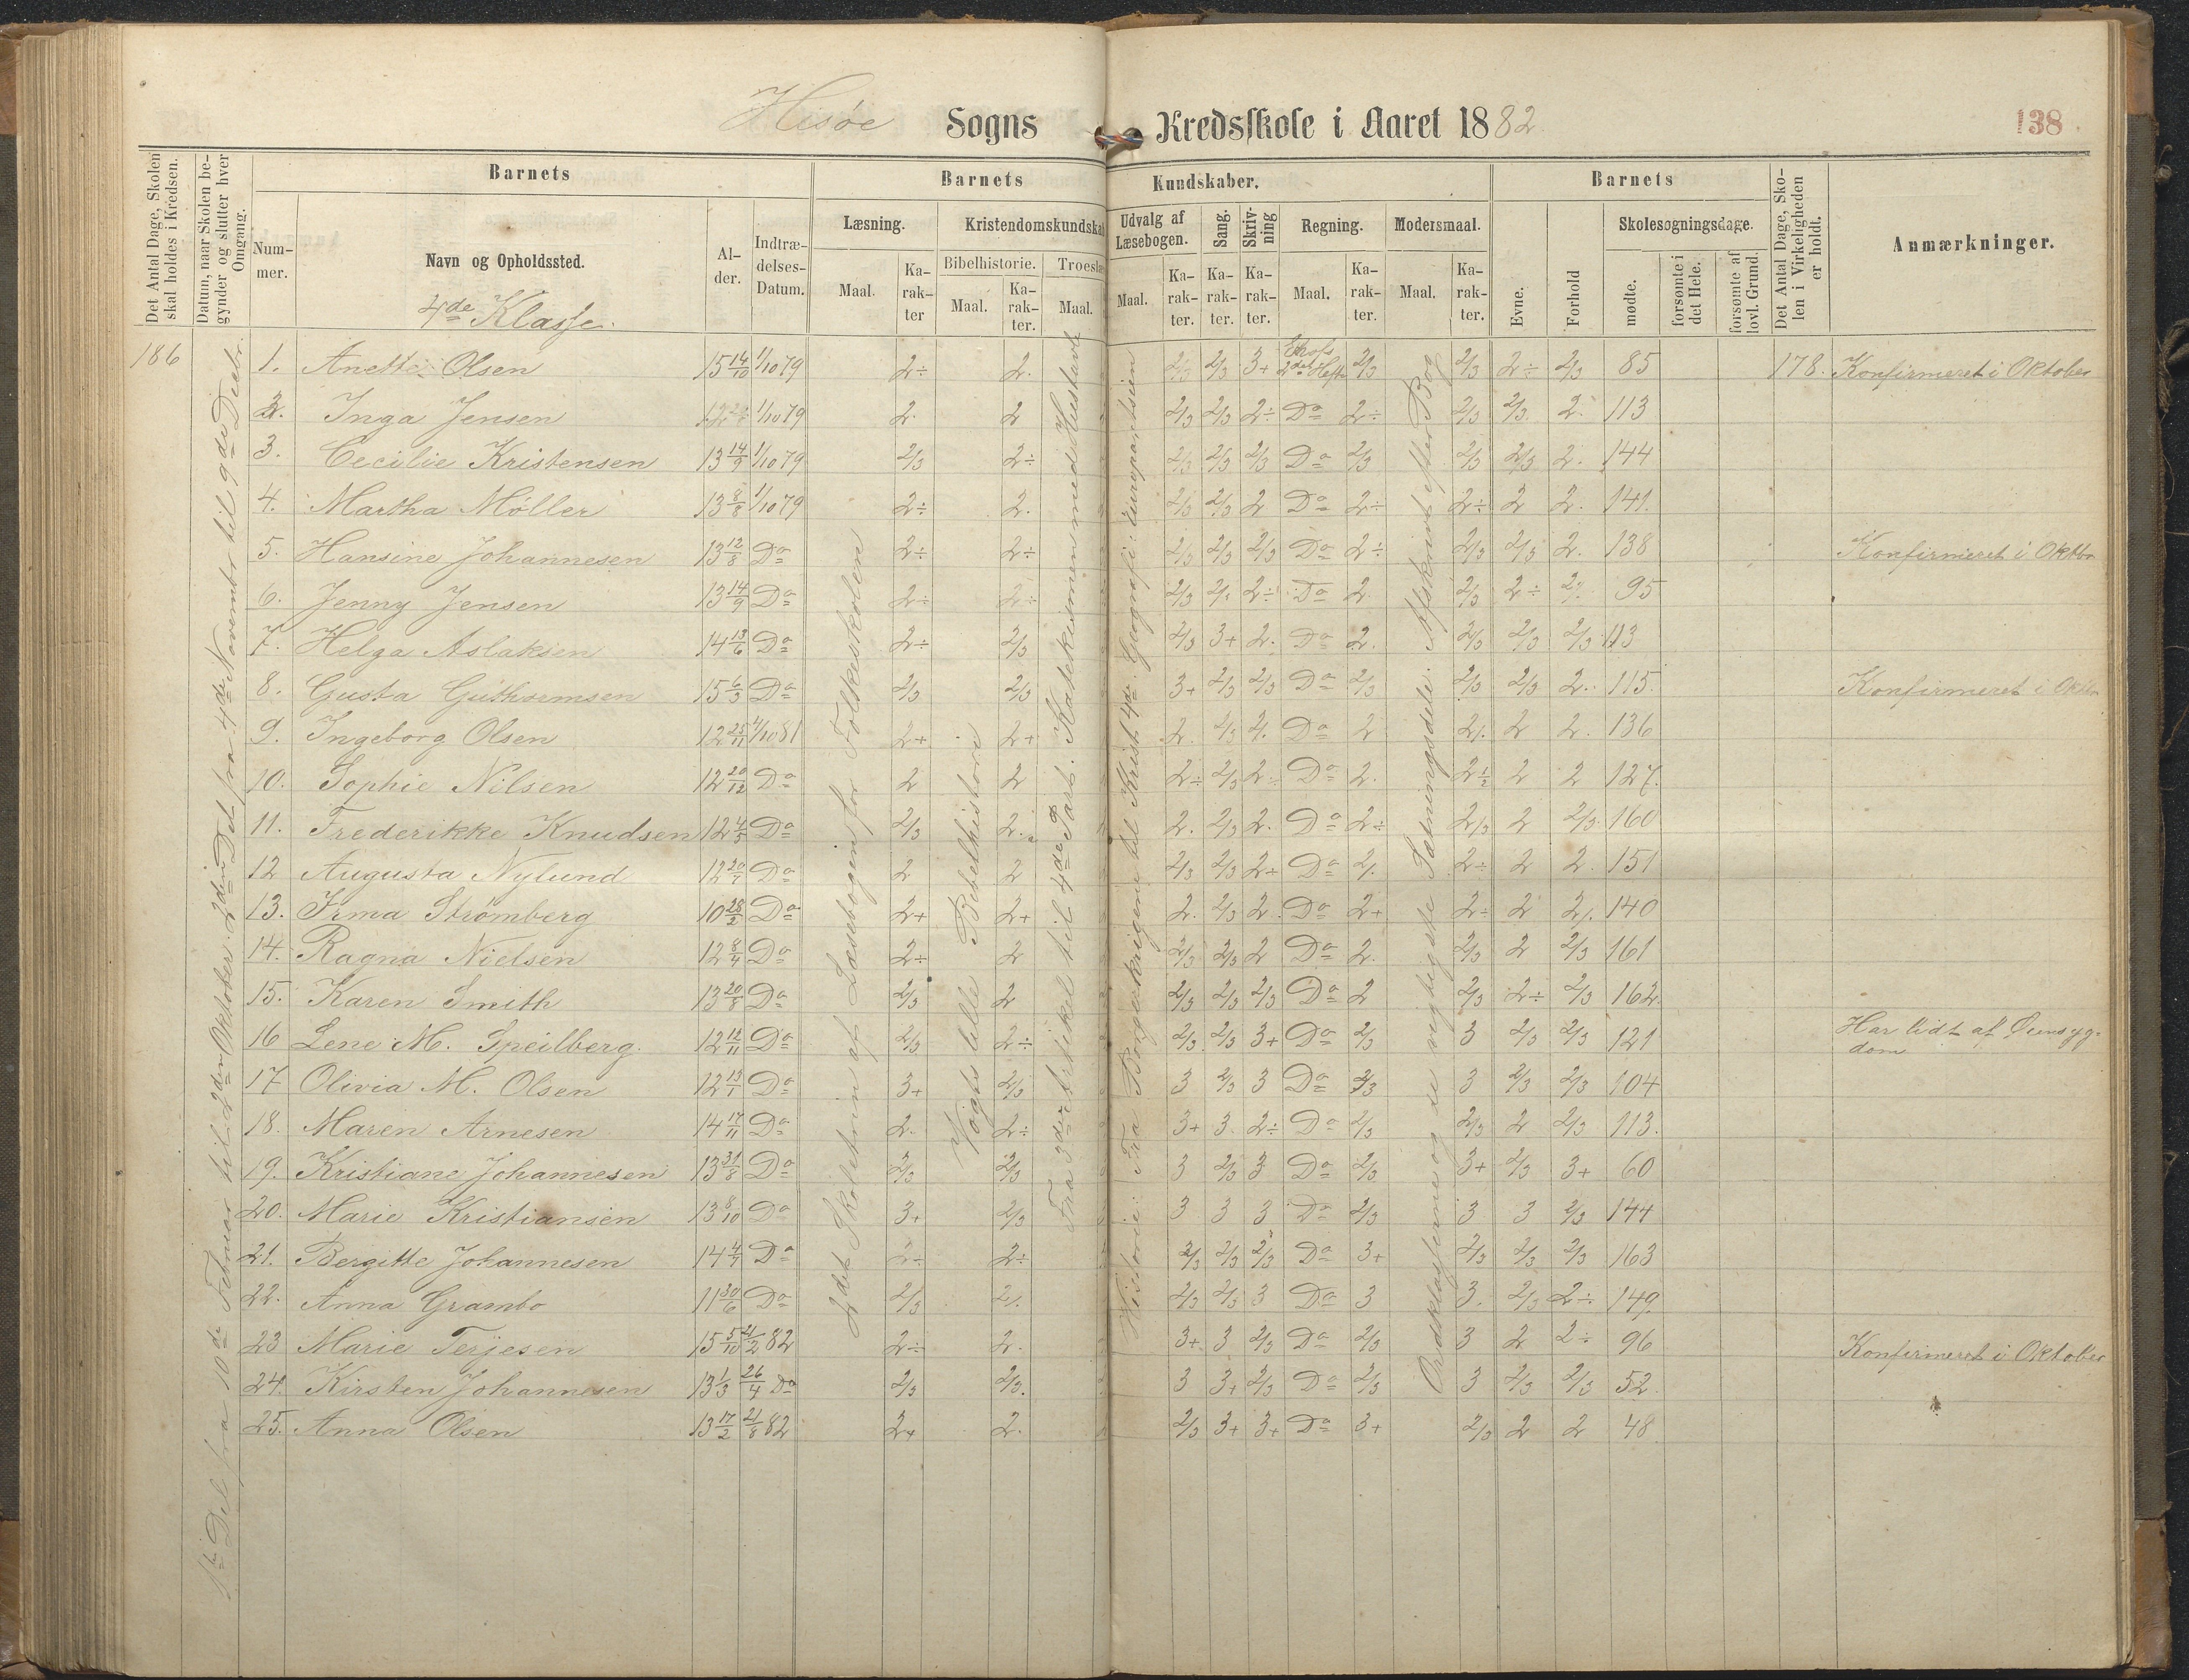 Hisøe Sogns Kredsskole i Aaret 1882
138
Det Antal Dage, Skolen skal holdes i Kredsen.
Datum, naar Skolen begynder og slutter hver Omgang.
Barnets
Nummer.
Navn og Opholdssted.
4de Klasse.
Alder.
Indtrædelses-Datum.
Barnets Kundskaber.
Læsning.
Maal.
Karakter
Kristendomskundskab
Bibelhistorie.
Maal.
Karakter.
Troeslæ
Maal.
Udvalg af Læsebogen.
Maal.
Karakter.
Sang.
Karakter.
Skrivning
Karakter.
Regning.
Maal.
Karakter.
Modersmaal.
Maal.
Karakter.
Barnets
Evne.
Forhold
Skolesøgningsdage.
mødte.
forsømte i det Hele.
forsømte af lovl. Grund.
Det Antal Dage, Skolen i Virkeligheden er holdt.
Anmærkninger.
186
1ste Del fra 10de Februar til 2den Oktober. 2den Del fra 4de Novembr til 9de Decbr.
2det Skoletrin af Læsebogen for Folkeskolen
Vogts lille Bibelhistorie
Fra 3die Artikel til 4de Part. Katekismen med Hustavle
Historie: Fra Borgerkrigene til Krist. 4de. Geografi: Europa
Ordklasserne og de vigtigste Sætningsdele. Afskrivt efter Bog
1. Anette Olsen 15 14/10 1/10 79 2÷ 2. 2/3 2/3 3+ 2det Hefte 2/3 2/3 2÷ 2/3 85 178. Konfirmeret i Oktober
2. Inga Jensen 1/10 79 2. 2 2/3 2/3 2÷ Do 2÷ 2/3 2/3 2. 113
3. Cecilie Kristensen 13 14/9 1/10 79 2/3 2÷ 2/3 2/3 2/3 Do 2/3 2/3 2/3 2. 144
4. Martha Møller 13 8/8 1/10 79 2÷ 2. 2/3 2/3 2 Do 2÷ 2÷ 2 2. 141.
5. Hansine Johannesen 13 12/8 Do 2÷ 2÷ 2/3 2/3 2/3 Do 2÷ 2/3 2/3 2. 138 Konfirmeret i Oktbr
6. Jenny Jensen 13 14/9 Do 2÷ 2÷ 2/3 2/. 2÷ Do 2 2/3 2÷ 2/. 95
7. Helga Aslaksen 14 13/6 Do 2÷ 2/3 2/3 3+ 2. Do 2. 2/3 2/3 2/3 113
8. Gusta Guthsemsen 15 6/3 Do 2/3 2/3 3+ 2/3 2/3 Do 2/3 2/3 2/3 2. 115. Konfirmeret i Oktbr
9. Ingeborg Olsen 12 25/11 4/10 81 2+ 2+ 2. 2/3 2/. Do 2 2/. 2 2. 136
10. Sophie Nilsen 12 20/12 Do 2 2 2÷ 2/3 2÷ Do 2. 2÷ 2 2 127.
11. Frederikke Knudsen 12 4/5 Do 2/3 2. 2. 2/3 2. Do 2÷ 2/3 2 2/3 160
12 Augusta Nylund 12 20/7 Do 2 2 2/3 2/3 2+ Do 2/. 2÷ 2 2. 151
13. Irma Strømberg 10 28/2 Do 2+ 2+ 2. 2/3 2. Do 2+ 2÷ 2 2/. 140
14. Ragna Nielsen 12 8/4 Do 2÷ 2 2/3 2/3 2 Do 2. 2/3 2 2/3 161
15. Karen Smith 13 20/8 Do 2/3 2 2/3 2/3 2/3 Do 2 2/3 2÷ 2/3 162.
16 Lene M. Speilberg. 12 12/11 Do 2/3 2÷ 2/3 2/3 3+ Do 2/3 3 2/3 2/3 121 Har lidt af Øiensygdom
17 Olivia M. Olsen 12 13/1 Do 3+ 2/3 3 2/3 3 Do 2/3 3 2/3 2/3 104
18. Maren Arnesen 14 17/11 Do 2. 2÷ 3+ 3. 2÷ Do 2/3 2/3 2 2/3 113.
19. Kristiane Johannesen 13 31/8 Do 2/3 2/3 3 2/3 3 Do 2/3 3+ 2/3 3+ 60
20. Marie Kristiansen 13 8/10 Do 3+ 2/3 3 3 3 Do 2/3 3 3 2/3 144
21. Bergitte Johannesen 14 4/7 Do 2÷ 2÷ 2/3 2/3 2/3 Do 3+ 2/3 2/3 2/3 163
22. Anna Grambo 11 30/6 Do 2/3 2/. 2/3 2/3 3 Do 3 3. 2/3 2÷ 149.
23 Marie Terjesen 15 5/10 21/2 82 2÷ 2. 3+ 3 2/3 Do 2/3 3 2 2÷ 96 Konfirmeret i Oktober
24. Kirsten Johannesen 13 1/3 26/4 Do 2/3 2/3. 3 3+ 2/3 Do 2/3 3 2/3 2/3 52.
25. Anna Olsen 13 17/2 21/8 82 2+ 2. 2/3 3+ 3+ Do 3+ 2/3 2 2 48